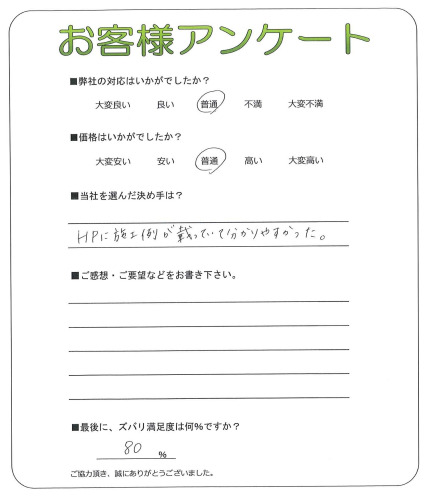 お客様アンケート
■弊社の対応はいかがでしたか？
大変良い 良い 普通 不満 大変不満
■価格はいかがでしたか？
大変安い 安い 普通 高い 大変高い
■当社を選んだ決め手は？
HPに施工例が載っていて分かりやすかった。
■ご感想・ご要望などをお書き下さい。
■最後に、ズバリ満足度は何％ですか？
80 ％
ご協力頂き、誠にありがとうございました。